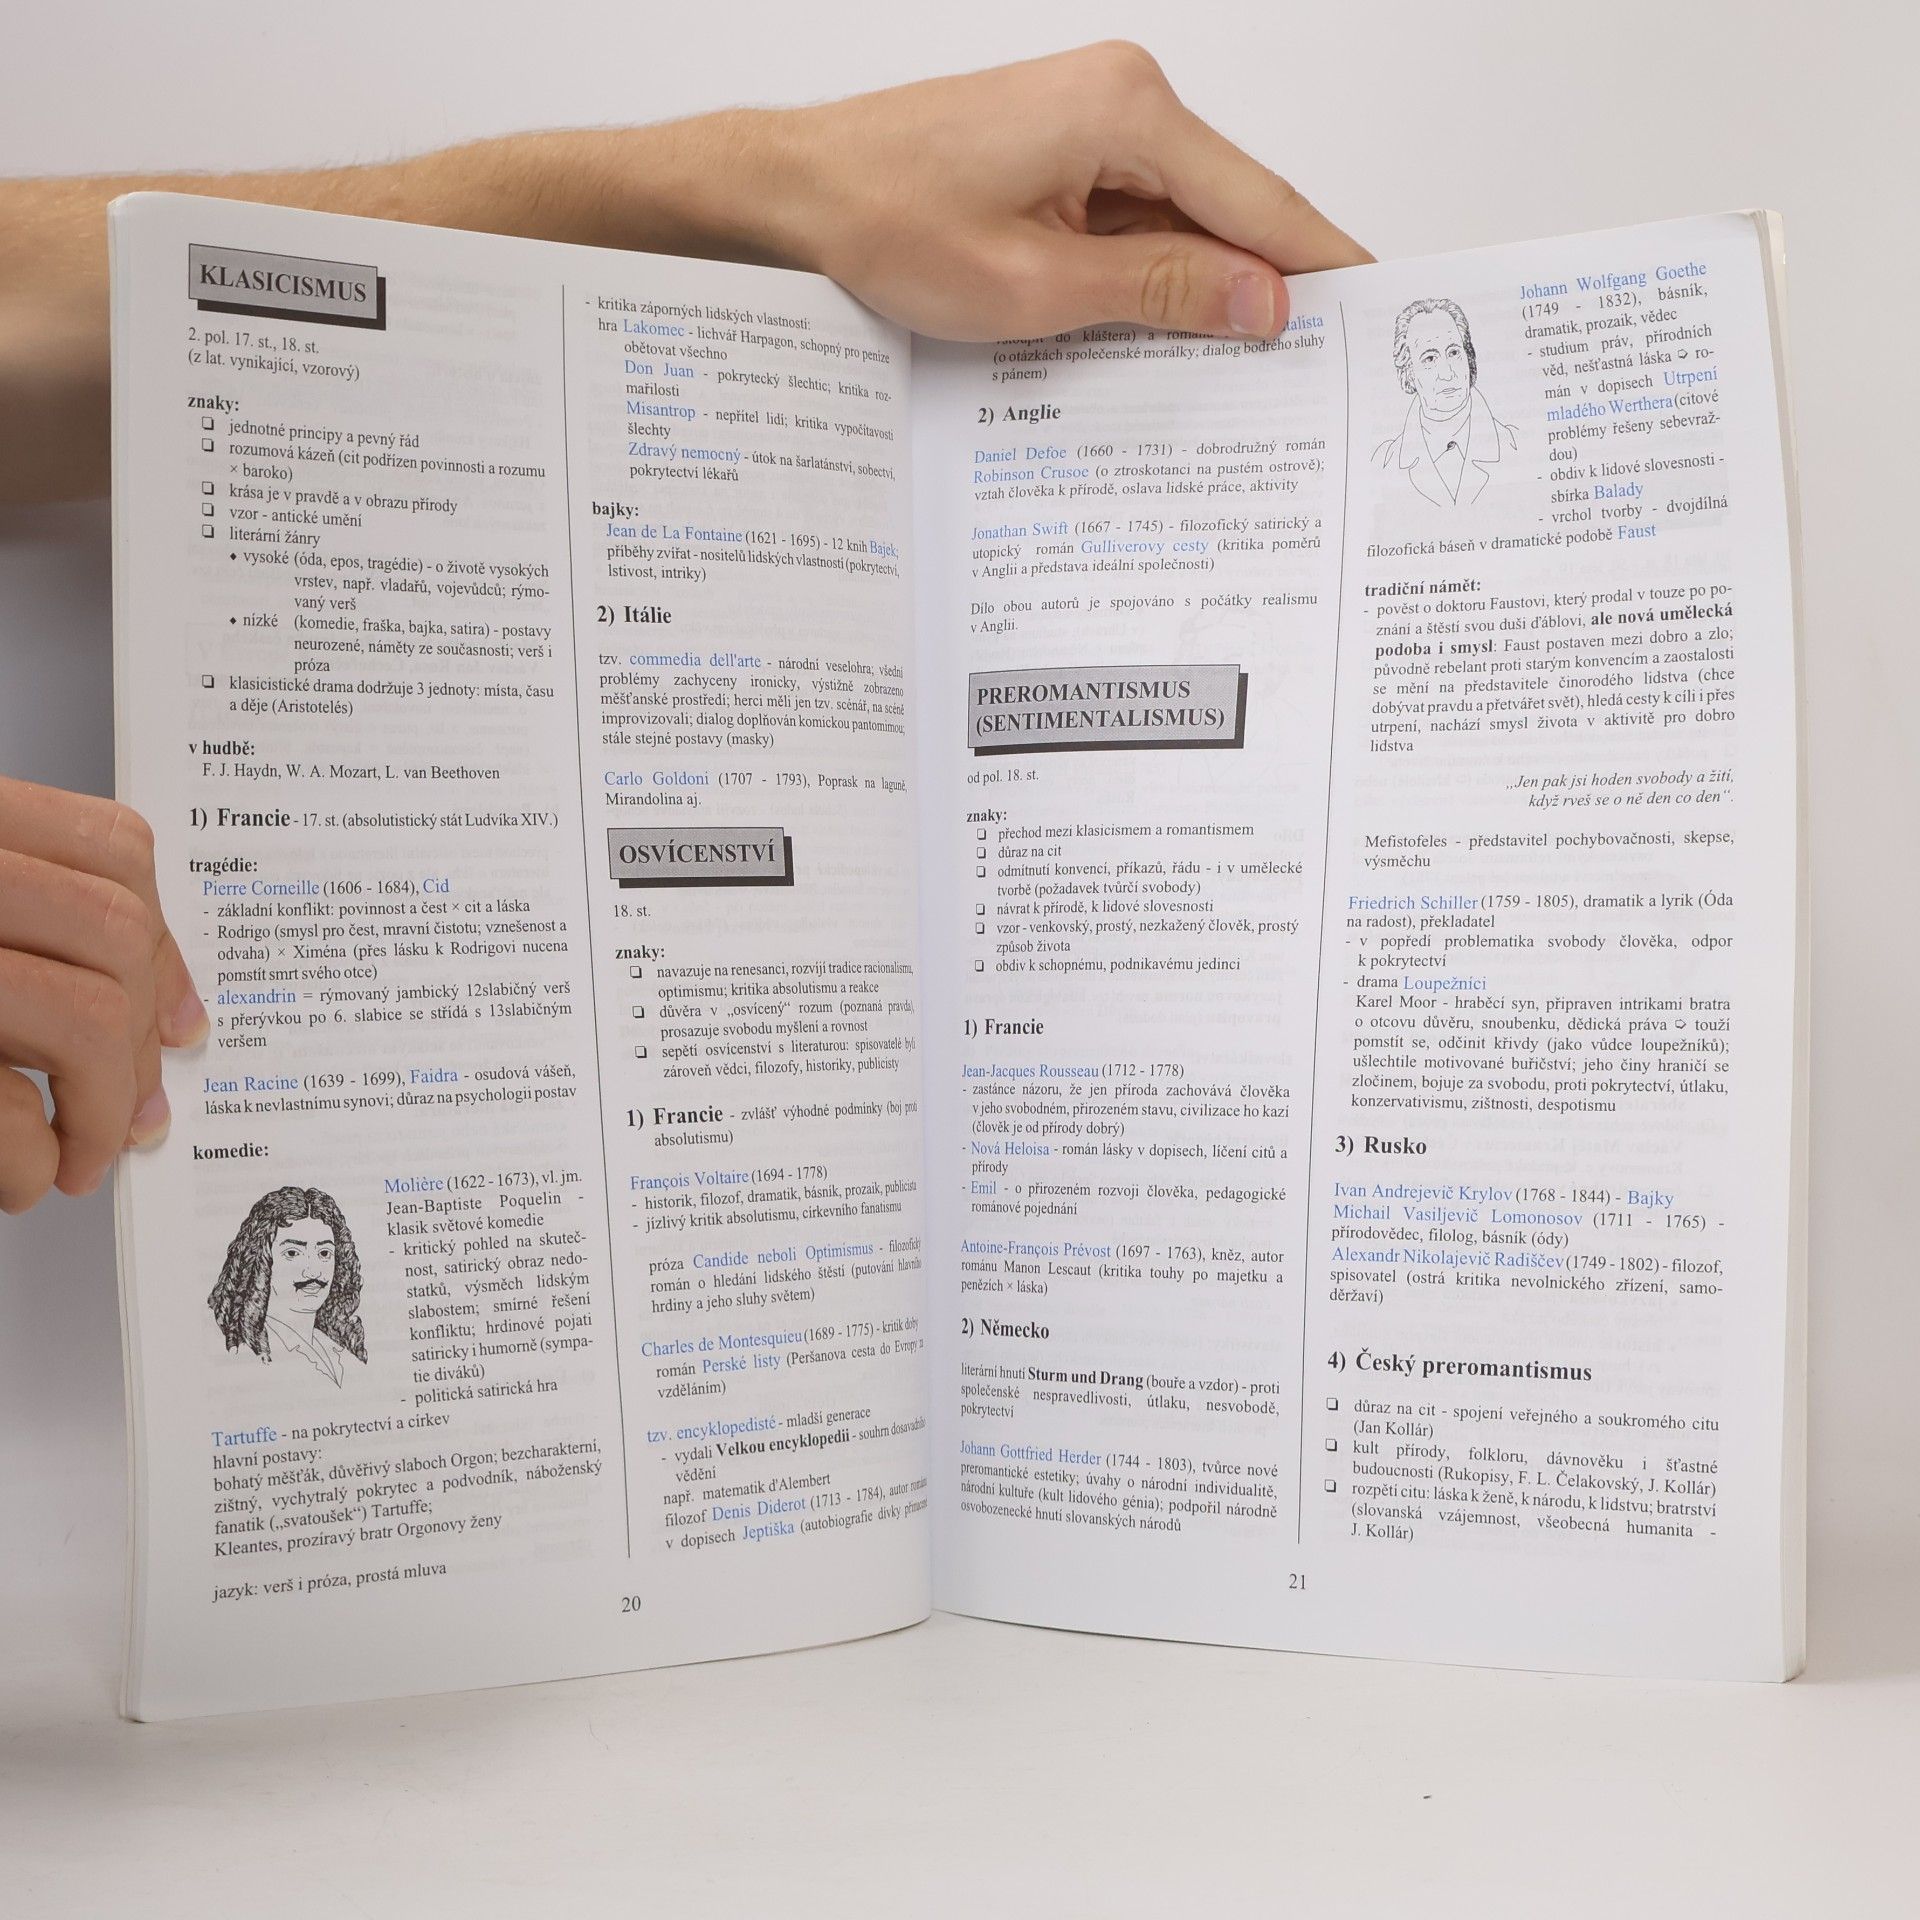 KLASICISMUS
2. pol. 17. st., 18. st.
(z lat. vynikající, vzorový)
znaky:
❏ jednotné principy a pevný řád
❏ rozumová kázeň (cit podřízen povinnosti a rozumu
× baroko)
❏ krása je v pravdě a v obrazu přírody
❏ vzor - antické umění
❏ literární žánry
♦ vysoké (óda, epos, tragédie) - o životě vysokých
vrstev, např. vladařů, vojevůdců; rýmo-
vaný verš
♦ nízké (komedie, fraška, bajka, satira) - postavy
neurozené, náměty ze současnosti; verš i
próza
❏ klasicistické drama dodržuje 3 jednoty: místa, času
a děje (Aristotelés)
v hudbě:
F. J. Haydn, W. A. Mozart, L. van Beethoven
1) Francie - 17. st. (absolutistický stát Ludvíka XIV.)
tragédie:
Pierre Corneille (1606 - 1684), Cid
- základní konflikt: povinnost a čest × cit a láska
- Rodrigo (smysl pro čest, mravní čistotu; vznešenost a
odvaha) × Xiména (přes lásku k Rodrigovi nucena
pomstít smrt svého otce)
- alexandrin = rýmovaný jambický 12slabičný verš
s přerývkou po 6. slabice se střídá s 13slabičným
veršem
Jean Racine (1639 - 1699), Faidra - osudová vášeň,
láska k nevlastnímu synovi; důraz na psychologii postav
komedie:
Molière (1622 - 1673), vl. jm.
Jean-Baptiste Poquelin -
klasik světové komedie
- kritický pohled na skuteč-
nost, satirický obraz nedo-
statků, výsměch lidským
slabostem; smírné řešení
konfliktu; hrdinové pojati
satiricky i humorně (sympa-
tie diváků)
- politická satirická hra
Tartuffe - na pokrytectví a církev
hlavní postavy:
bohatý měšťák, důvěřivý slaboch Orgon; bezcharakterní,
zištný, vychytralý pokrytec a podvodník, náboženský
fanatik („svatoušek“) Tartuffe;
Kleantes, prozíravý bratr Orgonovy ženy
jazyk: verš i próza, prostá mluva
- kritika záporných lidských vlastností:
hra Lakomec - lichvář Harpagon, schopný pro peníze
obětovat všechno
Don Juan - pokrytecký šlechtic; kritika roz-
mařilosti
Misantrop - nepřítel lidí; kritika vypočítavosti
šlechty
Zdravý nemocný - útok na šarlatánství, sobectví,
pokrytectví lékařů
bajky:
Jean de La Fontaine (1621 - 1695) - 12 knih Bajek;
příběhy zvířat - nositelů lidských vlastností (pokrytectví,
lstivost, intriky)
2) Itálie
tzv. commedia dell'arte - národní veselohra; všední
problémy zachyceny ironicky, výstižně zobrazeno
měšťanské prostředí; herci měli jen tzv. scénář, na scéně
improvizovali; dialog doplňován komickou pantomimou;
stále stejné postavy (masky)
Carlo Goldoni (1707 - 1793), Poprask na laguně,
Mirandolina aj.
OSVÍCENSTVÍ
18. st.
znaky:
❏ navazuje na renesanci, rozvíjí tradice racionalismu,
optimismu; kritika absolutismu a reakce
❏ důvěra v „osvícený“ rozum (poznaná pravda),
prosazuje svobodu myšlení a rovnost
❏ sepětí osvícenství s literaturou: spisovatelé byli
zároveň vědci, filozofy, historiky, publicisty
1) Francie - zvlášť výhodné podmínky (boj proti
absolutismu)
François Voltaire (1694 - 1778)
- historik, filozof, dramatik, básník, prozaik, publicista
- jízlivý kritik absolutismu, církevního fanatismu
próza Candide neboli Optimismus - filozofický
román o hledání lidského štěstí (putování hlavního
hrdiny a jeho sluhy světem)
Charles de Montesquieu (1689 - 1775) - kritik doby
román Perské listy (Peršanova cesta do Evropy za
vzděláním)
tzv. encyklopedisté - mladší generace
- vydali Velkou encyklopedii - souhrn dosavadního
vědění
např. matematik d'Alembert
filozof Denis Diderot (1713 - 1784), autor románu
v dopisech Jeptiška (autobiografie dívky přinucené
20
do kláštera) a
(o otázkách společenské morálky; dialog bodrého sluhy
s pánem)
2) Anglie
Daniel Defoe (1660 - 1731) - dobrodružný román
Robinson Crusoe (o ztroskotanci na pustém ostrově);
vztah člověka k přírodě, oslava lidské práce, aktivity
Jonathan Swift (1667 - 1745) - filozofický satirický a
utopický román Gulliverovy cesty (kritika poměrů
v Anglii a představa ideální společnosti)
Dílo obou autorů je spojováno s počátky realismu
v Anglii.
PREROMANTISMUS
(SENTIMENTALISMUS)
od pol. 18. st.
znaky:
❏ přechod mezi klasicismem a romantismem
❏ důraz na cit
❏ odmítnutí konvencí, příkazů, řádu - i v umělecké
tvorbě (požadavek tvůrčí svobody)
❏ návrat k přírodě, k lidové slovesnosti
❏ vzor - venkovský, prostý, nezkažený člověk, prostý
způsob života
❏ obdiv k schopnému, podnikavému jedinci
1) Francie
Jean-Jacques Rousseau (1712 - 1778)
- zastánce názoru, že jen příroda zachovává člověka
v jeho svobodném, přirozeném stavu, civilizace ho kazí
(člověk je od přírody dobrý)
- Nová Heloisa - román lásky v dopisech, líčení citů a
přírody
- Emil - o přirozeném rozvoji člověka, pedagogické
románové pojednání
Antoine-François Prévost (1697 - 1763), kněz, autor
románu Manon Lescaut (kritika touhy po majetku a
penězích × láska)
2) Německo
literární hnutí Sturm und Drang (bouře a vzdor) - proti
společenské nespravedlivosti, útlaku, nesvobodě,
pokrytectví
Johann Gottfried Herder (1744 - 1803), tvůrce nové
preromantické estetiky; úvahy o národní individualitě,
národní kultuře (kult lidového génia); podpořil národně
osvobozenecké hnutí slovanských národů
Johann Wolfgang Goethe
(1749 - 1832), básník,
dramatik, prozaik, vědec
- studium práv, přírodních
věd, nešťastná láska ➩ ro-
mán v dopisech Utrpení
mladého Werthera (citové
problémy řešeny sebevraž-
dou)
- obdiv k lidové slovesnosti -
sbírka Balady
- vrchol tvorby - dvojdílná
filozofická báseň v dramatické podobě Faust
tradiční námět:
- pověst o doktoru Faustovi, který prodal v touze po po-
znání a štěstí svou duši ďáblovi, ale nová umělecká
podoba i smysl: Faust postaven mezi dobro a zlo;
původně rebelant proti starým konvencím a zaostalosti
se mění na představitele činorodého lidstva (chce
dobývat pravdu a přetvářet svět), hledá cesty k cíli i přes
utrpení, nachází smysl života v aktivitě pro dobro
lidstva
„Jen pak jsi hoden svobody a žití,
když rveš se o ně den co den“.
Mefistofeles - představitel pochybovačnosti, skepse,
výsměchu
Friedrich Schiller (1759 - 1805), dramatik a lyrik (Óda
na radost), překladatel
- v popředí problematika svobody člověka, odpor
k pokrytectví
- drama Loupežníci
Karel Moor - hraběcí syn, připraven intrikami bratra
o otcovu důvěru, snoubenku, dědická práva ➩ touží
pomstít se, odčinit křivdy (jako vůdce loupežníků);
ušlechtile motivované buřičství; jeho činy hraničí se
zločinem, bojuje za svobodu, proti pokrytectví, útlaku,
konzervativismu, zištnosti, despotismu
3) Rusko
Ivan Andrejevič Krylov (1768 - 1844) - Bajky
Michail Vasiljevič Lomonosov (1711 - 1765) -
přírodovědec, filolog, básník (ódy)
Alexandr Nikolajevič Radiščev (1749 - 1802) - filozof,
spisovatel (ostrá kritika nevolnického zřízení, samo-
děržaví)
4) Český preromantismus
❏ důraz na cit - spojení veřejného a soukromého citu
(Jan Kollár)
❏ kult přírody, folkloru, dávnověku i šťastné
budoucnosti (Rukopisy, F. L. Čelakovský, J. Kollár)
❏ rozpětí citu: láska k ženě, k národu, k lidstvu; bratrství
(slovanská vzájemnost, všeobecná humanita -
J. Kollár)
21